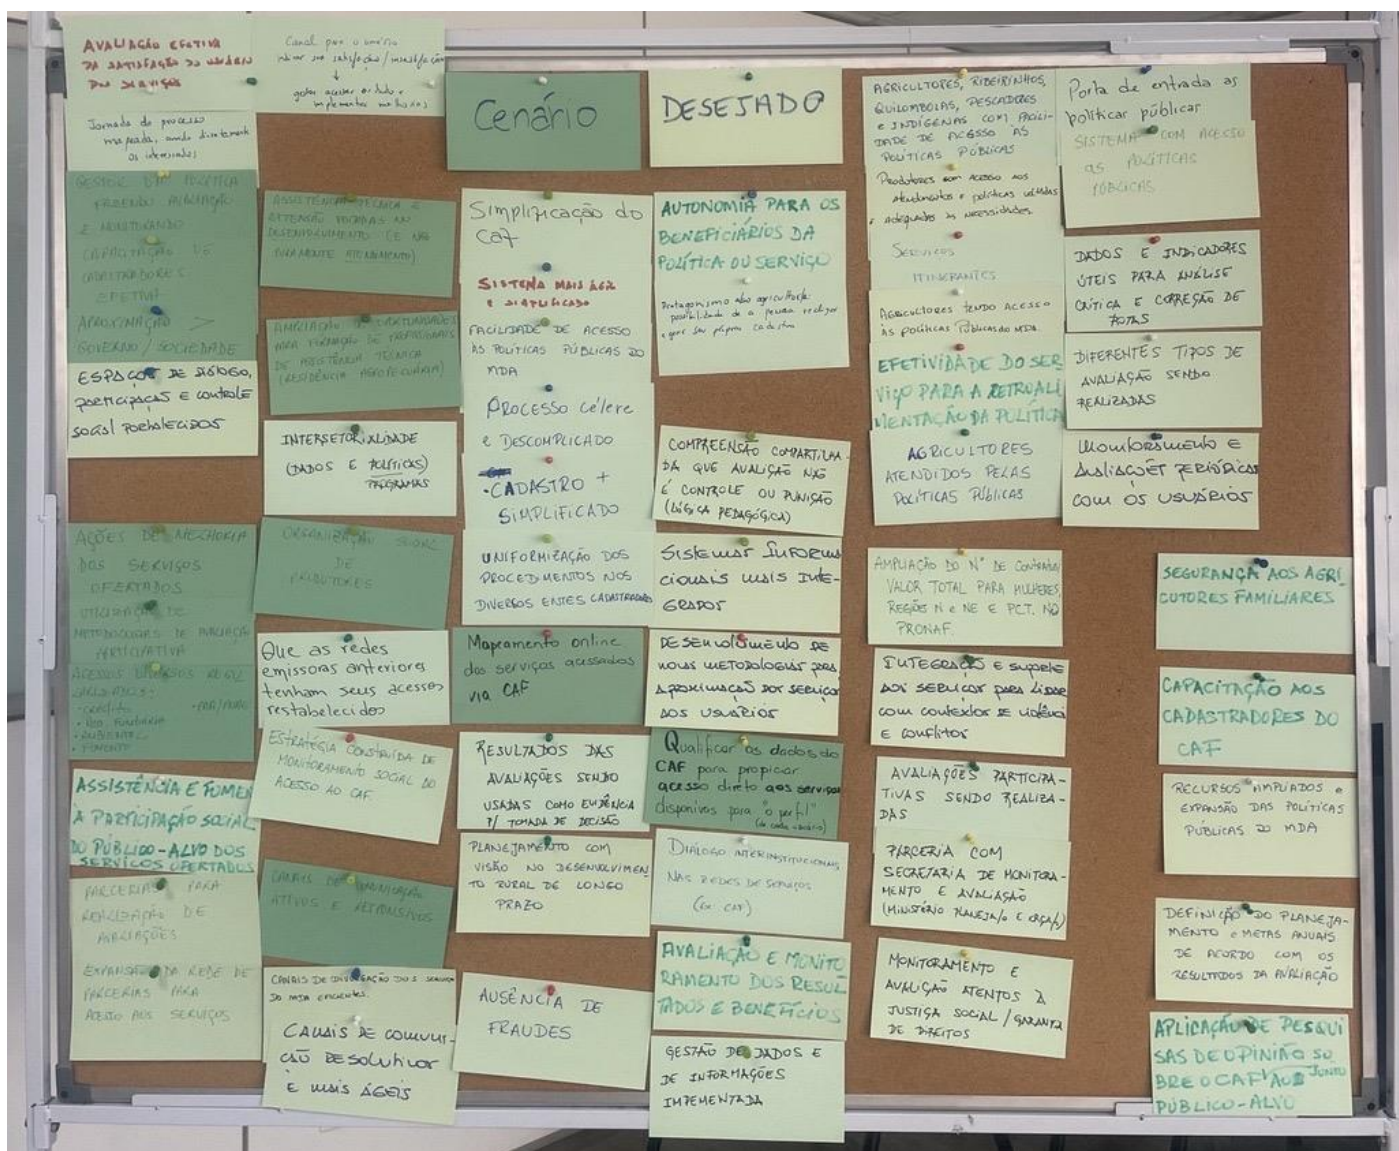 AVALIAÇÃO EFETIVA
DA SATISFAÇÃO DO USUÁRIO
DOS SERVIÇOS
Jornada do processo
mapeada, ouvindo diretamente
os interessados
GESTOR DA POLÍTICA
FAZENDO AVALIAÇÃO
E MONITORANDO
CAPACITAÇÃO DE
CADASTRADORES
EFETIVA
APROXIMAÇÃO >
GOVERNO/SOCIEDADE
ESPAÇOS DE DIÁLOGO,
PARTICIPAÇÃO E CONTROLE
SOCIAL FORTALECIDOS
AÇÕES DE MELHORIA
DOS SERVIÇOS
OFERTADOS
UTILIZAÇÃO DE
METODOLOGIAS DE AVALIAÇÃO
PARTICIPATIVA
ACESSOS DIVERSOS
- CRÉDITO
AMBIENTAL
• FOMENTO
ASSISTÊNCIA E FOMEN
À PARTICIPAÇÃO SOCIAL
DO PÚBLICO-ALVO DOS
SERVIÇOS OFERTADOS
PARCERIAS PARA
REALIZAÇÃO DE
AVALIAÇÕES
EXPANSÃO DA REDE DE
PARCERIAS PARA
ACESSO AOS SERVIÇOS
Canal para o usuário
indicar sua satisfação/insatisfação
↓
gestor acessar os dados e
implementar melhorias
ASSISTÊNCIA TÉCNICA E
EXTENSÃO FOCADAS NO
DESENVOLVIMENTO (E NÃO
PURAMENTE ATENDIMENTO)
AMPLIAÇÃO DE OPORTUNIDADES
PARA FORMAÇÃO DE PROFISSIONAIS
DE ASSISTÊNCIA TÉCNICA
(RESIDÊNCIA AGROPECUÁRIA)
INTERSETORIALIDADE
(DADOS E POLÍTICAS)
PROGRAMAS
ORGANIZAÇÃO SOCIAL
DE
PRODUTORES
Que as redes
emissoras anteriores
tenham seus acessos
restabelecidos
ESTRATÉGIA CONSTRUÍDA DE
MONITORAMENTO SOCIAL DO
ACESSO AO CAF.
CANAIS DE COMUNICAÇÃO
ATIVOS E RESPONSIVOS
CANAIS DE DIVULGAÇÃO DOS SERVIÇOS
DO MDA EFICIENTES.
CANAIS DE COMUNI-
CAÇÃO RESOLUTIVOS
E MAIS ÁGEIS
Cenário
Simplificação do
CAF
SISTEMA MAIS ÁGIL
E SIMPLIFICADO
FACILIDADE DE ACESSO
ÀS POLÍTICAS PÚBLICAS DO
MDA
PROCESSO CÉLERE
E DESCOMPLICADO
• CADASTRO +
SIMPLIFICADO
UNIFORMIZAÇÃO DOS
PROCEDIMENTOS NOS
DIVERSOS ENTES CADASTRADORES
Mapeamento online
dos serviços acessados
via CAF
RESULTADOS DAS
AVALIAÇÕES SENDO
USADAS COMO EVIDÊNCIA
P/ TOMADA DE DECISÃO
PLANEJAMENTO COM
VISÃO NO DESENVOLVIMEN
TO RURAL DE LONGO
PRAZO
AUSÊNCIA DE
FRAUDES
DESEJADO
AUTONOMIA PARA OS
BENEFICIÁRIOS DA
POLÍTICA OU SERVIÇO
Protagonismo
possibilidade de a pessoa realizar
e gerir seu próprio cadastro
COMPREENSÃO COMPARTILHA-
DA QUE AVALIÇÃO NÃO
É CONTROLE OU PUNIÇÃO
(LÓGICA PEDAGÓGICA)
SISTEMAS INFORMA
CIONAIS MAIS INTE-
GRADOS
DESENVOLVIMENTO DE
NOVAS METODOLOGIAS PARA
APROXIMAÇÃO DOS SERVIÇOS
AOS USUÁRIOS
Qualificar os dados do
CAF para propiciar
acesso direto aos serviços
disponívos para "o perfil"
(de cada usuário)
DIÁLOGO INTERINSTITUCIONAL
NAS REDES DE SERVIÇOS
(EX: CAF)
AVALIAÇÃO E MONITO
RAMENTO DOS RESUL
TADOS E BENEFÍCIOS
GESTÃO DE DADOS E
DE INFORMAÇÕES
IMPEMENTADA
AGRICULTORES, RIBEIRINHOS,
QUILOMBOLAS, PESCADORES
E INDÍGENAS COM FACILI-
DADE DE ACESSO ÀS
POLÍTICAS PÚBLICAS
PRODUTORES COM ACESSO AOS
atendimentos e políticas voltadas
e adequadas às necessidades.
SERVIÇOS
ITINERANTES
AGRICULTORES TENDO ACESSO
ÀS POLÍTICAS PÚBLICAS DO MDA.
EFETIVIDADE DO SER
VIÇO PARA A RETROALI
MENTAÇÃO DA POLÍTICA
AGRICULTORES
ATENDIDOS PELAS
POLÍTICAS PÚBLICAS
AMPLIAÇÃO DO Nº DE CONTRATOS/
VALOR TOTAL PARA MULHERES,
REGIÕES N e NE E PCT. NO
PRONAF.
INTEGRAÇÃO E SUPORTE
AOS SERVIÇOS PARA LIDAR
COM CONTEXTOS DE VIOLÊNCIA
E CONFLITOS
AVALIAÇÕES PARTICIPA-
TIVAS SENDO REALIZA-
DAS
PARCERIA COM
SECRETARIA DE MONITORA-
MENTO E AVALIAÇÃO
(MINISTÉRIO PLANEJA/O E ORÇA/O)
MONITORAMENTO E
AVALIÇÃO ATENTOS À
JUSTIÇA SOCIAL/GARANTIA
DE DIREITOS
Porta de entrada as
políticas públicas
SISTEMA COM ACESSO
AS POLÍTICAS
PÚBLICAS
DADOS E INDICADORES
ÚTEIS PARA ANÁLISE
CRÍTICA E CORREÇÃO DE
ROTAS
DIFERENTES TIPOS DE
AVALIAÇÃO SENDO
REALIZADAS
MONITORAMENTO E
AVALIAÇÕES PERIÓDICAS
COM OS USUÁRIOS
SEGURANÇA AOS AGRI
CUTORES FAMILIARES
CAPACITAÇÃO AOS
CADASTRADORES DO
CAF
RECURSOS AMPLIADOS e
EXPANSÃO DAS POLÍTICAS
PÚBLICAS DO MDA
DEFINIÇÃO DO PLANEJA-
MENTO e METAS ANUAIS
DE ACORDO COM OS
RESULTADOS DA AVALIAÇÃO
APLICAÇÃO DE PESQUI
SAS DE OPINIÃO SO
BRE O CAF JUNTO AO
PÚBLICO-ALVO